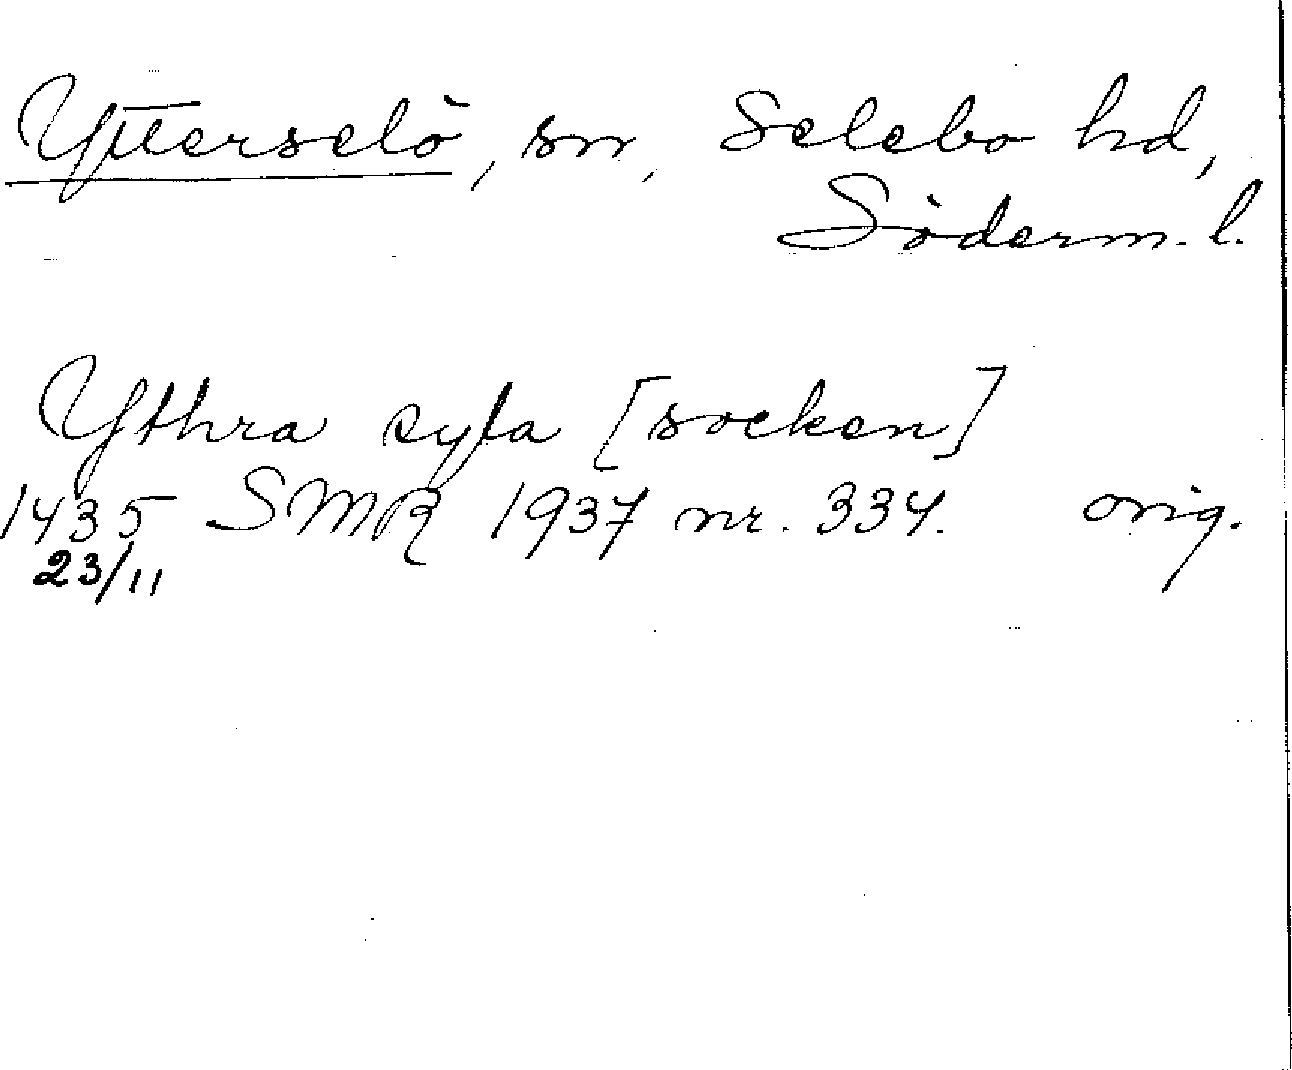 Ytterselö, sn, Selebo hd,
Söderm. l.
Ythra syla [socken]
1435 SMR 1937 nr. 334. orig.
23/11